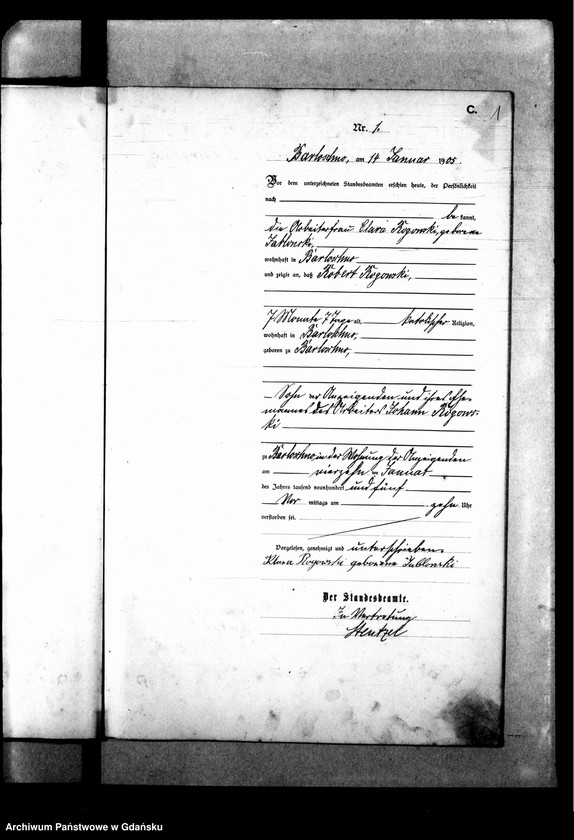 C. 1
Nr. 1.
Barloschno, am 14 Januar 1905.
Vor dem unterzeichneten Standesbeamten erschien heute, der Persönlichkeit
nach
be kannt,
die Arbeiterfrau Clara Rogowski, geborene
Jablonski,
wohnhaft in Barloschno
und zeigte an, daß Robert Rogowski,
7 Monate 7 Tage alt, katolischer Religion,
wohnhaft in Barloschno,
geboren zu Barloschno,
Sohn der Anzeigenden und ihres Ehe-
mannes des Arbeiters Johann Rogows-
ki
zu Barloschno in der Wohnung der Anzeigenden
am vierzehn ten Januar
des Jahres tausend neunhundert und fünf
Vor mittags um zehn Uhr
verstorben sei.
Vorgelesen, genehmigt und unterschrieben
Klara Rogowski geborene Jablonski
Der Standesbeamte.
In Vertretung
Stentzel
Archiwum Państwowe w Gdańsku